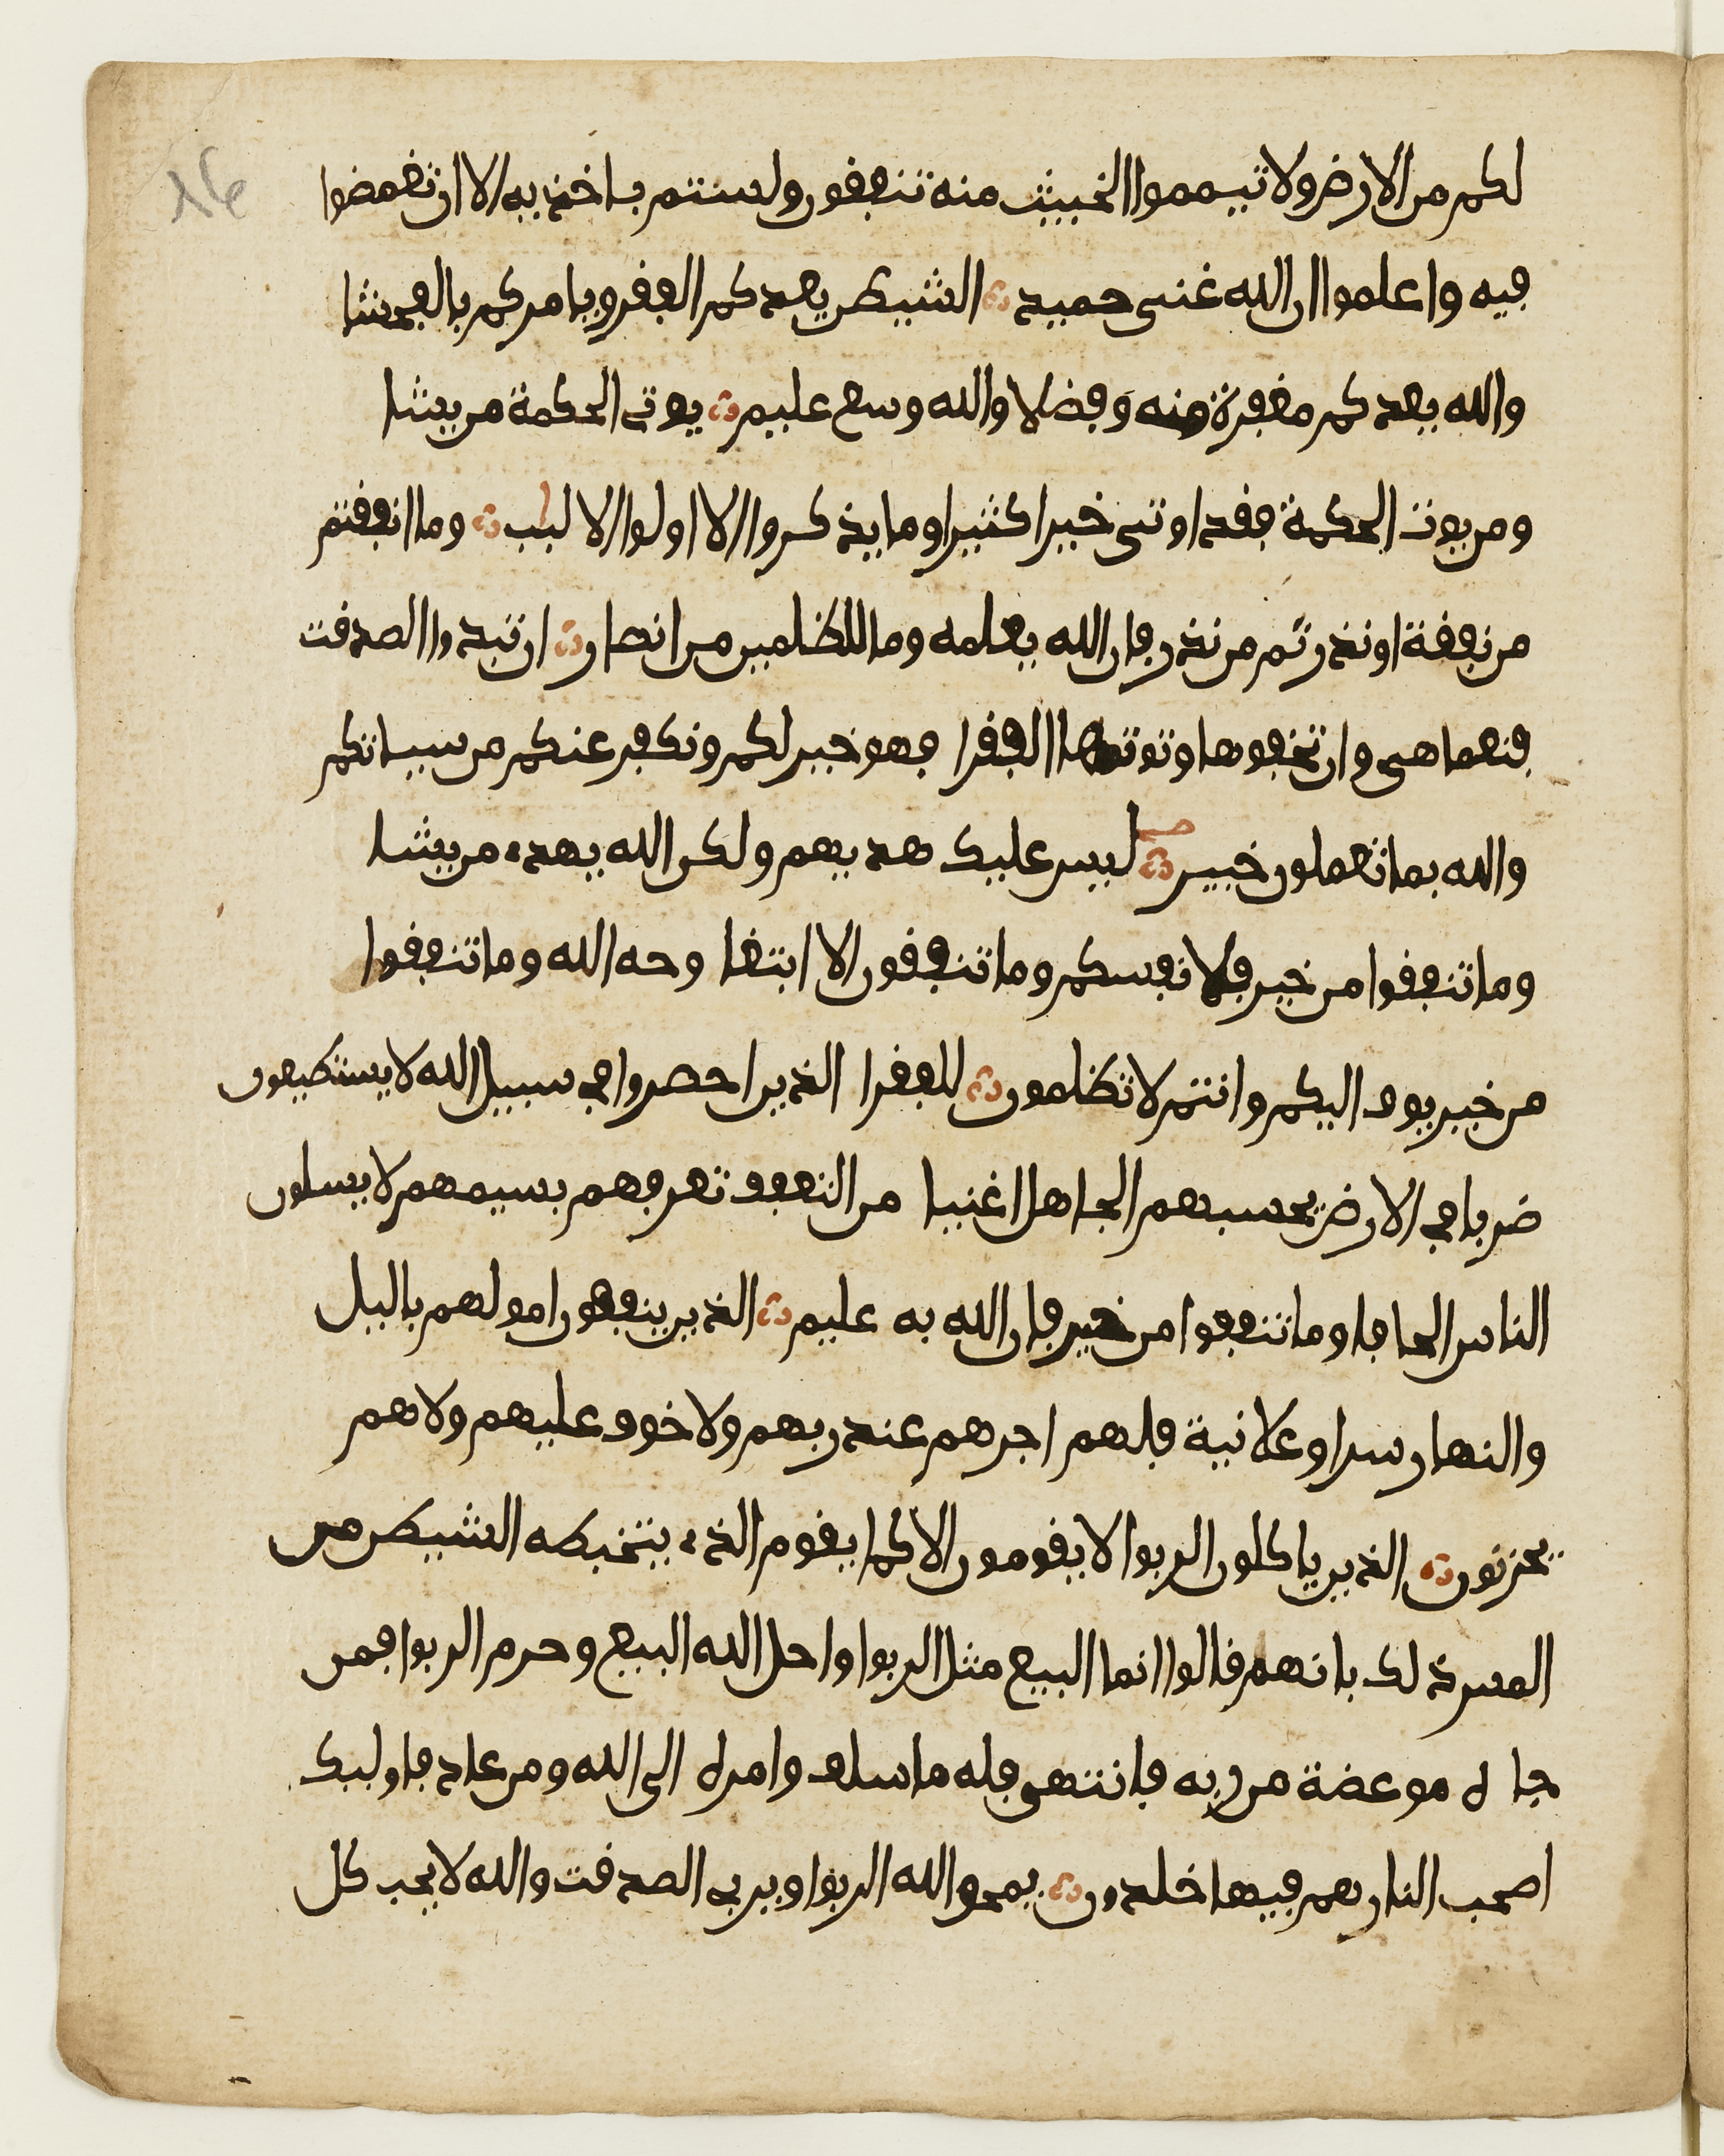 لكم من الارض ولا تيمموا الخبيث منه تنفقون ولستم باخذيه الا ان تغمضوا
فيه واعلموا ان الله غنى حميد الشيطن يعدكم الفقر ويامركم بالفحشا
والله يعدكم مغفرة منه وفضلا والله وسع عليم يوتى الحكمة من يشا
ومن يوت الحكمة فقد اوتى خيرا كثيرا وما يذكروا الا اولوا الالبب وما انفقتم
من نفقة او نذرتم من نذر فان الله يعلمه وما للظلمين من انصار ان تبدوا الصدقت
فنعما هى وان تخفوها وتوتوها الفقرا فهو خير لكم ونكفر عنكم من سياتكم
والله بما تعملون خبير ليس عليك هديهم ولكن الله يهدے من يشا
وما تنفقوا من خير فلانفسكم وما تنفقون الا ابتغا وجه الله وما تنفقوا
من خير يوف اليكم وانتم لا تظلمون للفقرا الذين احصروا في سبيل الله لا يستطيعون
ضربا في الارض يحسبهم الجاهل اغنيا من التعفف تعرفهم بسيمهم لا يسلون
الناس الحافا وما تنفقوا من خير فان الله به عليم الذين ينفقون امولهم باليل
والنهار سرا وعلانية فلهم اجرهم عند ربهم ولا خوف عليهم ولا هم
يحزنون الذين ياكلون الربوا لا يقومون الا كما يقوم الذے يتخبطه الشيطن من
المس ذلك بانهم قالوا انما البيع مثل الربوا واحل الله البيع وحرم الربوا فمن
جا له موعضة من ربه فانتهى فله ما سلف وامره الى الله ومن عاد فاوليك
اصحب النار هم فيها خلدون يمحوا الله الربوا ويربى الصدقت والله لا يحب كل